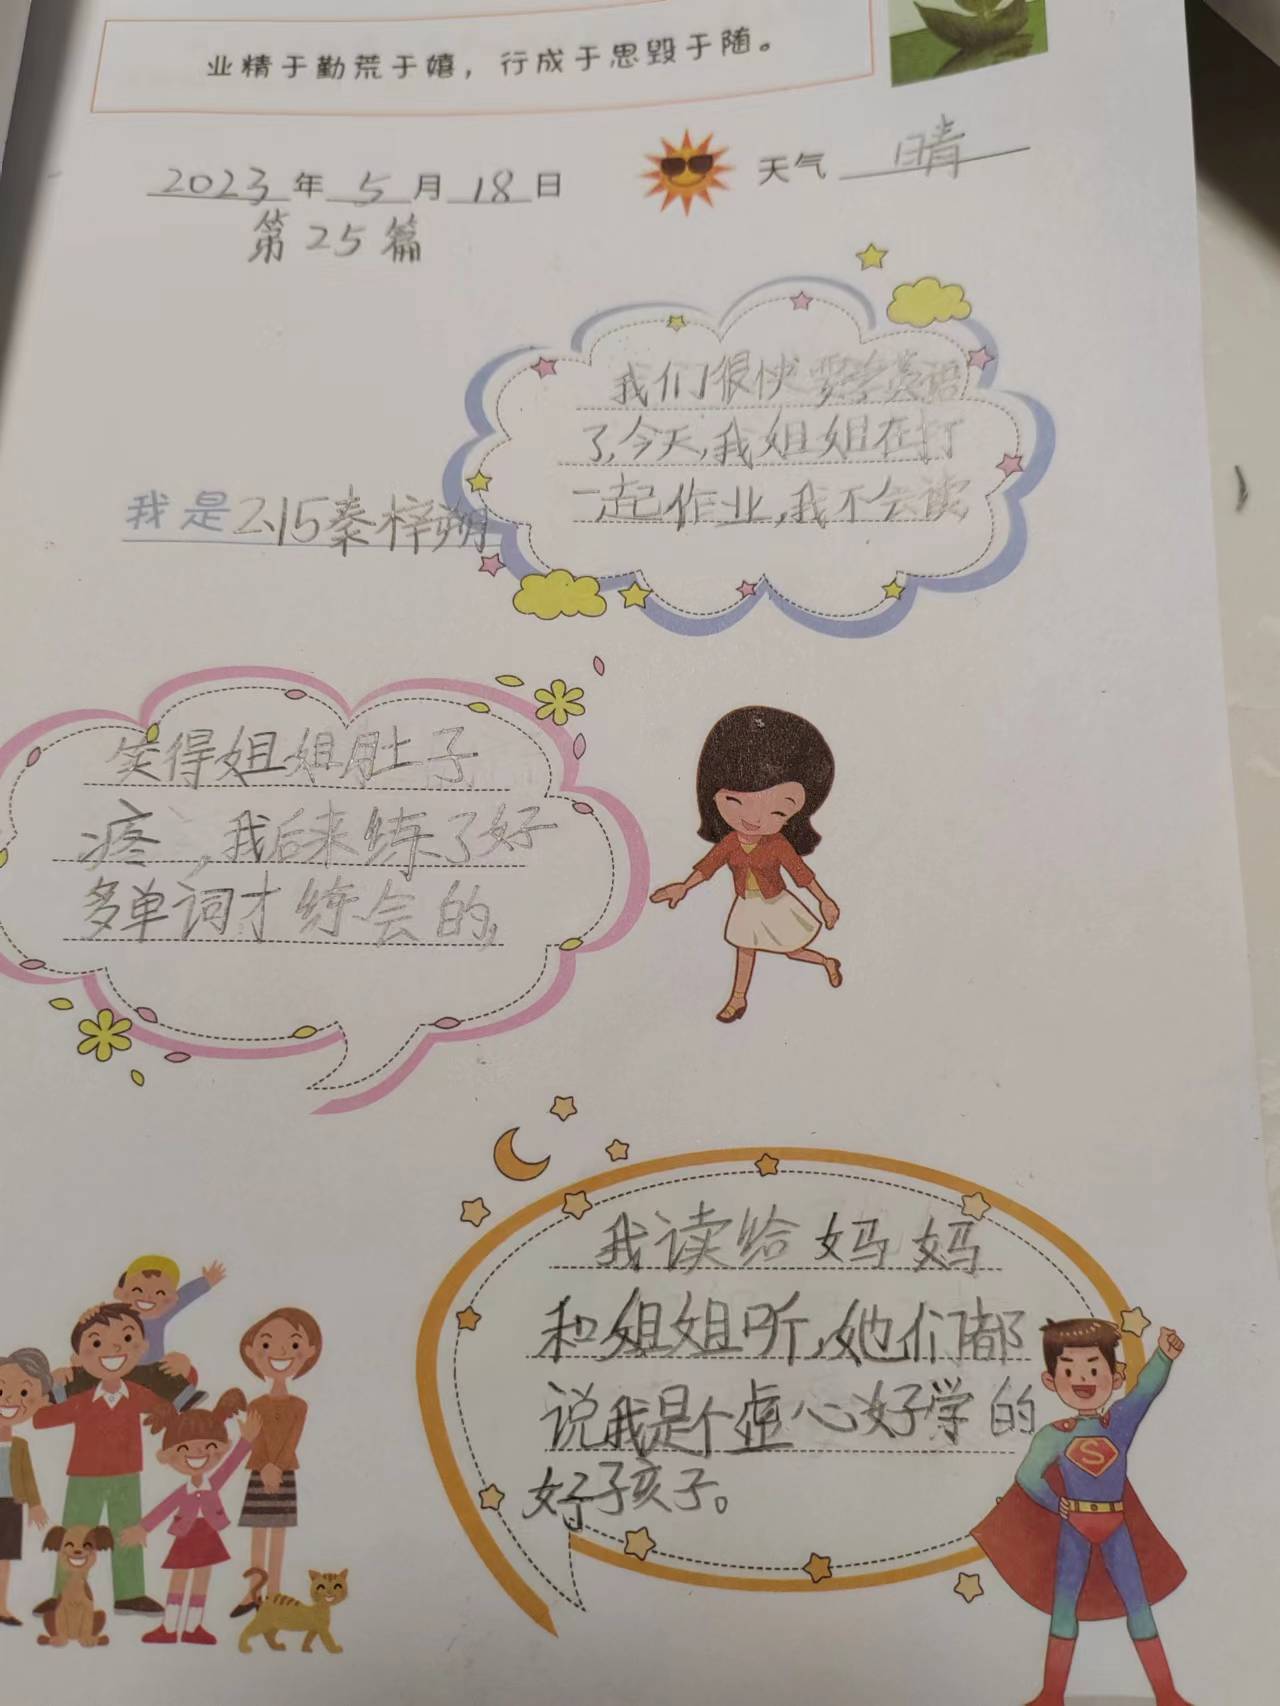 业精于勤荒于嬉，行成于思毁于随。
2023年5月18日
天气 晴
第25篇
我们很快要学英语
了,今天,我姐姐在打
一起作业,我不会读,
我是2.15秦梓朔
笑得姐姐肚子
疼,我后来练了好
多单词才练会的,
我读给妈妈
和姐姐听,她们都
说我是个虚心好学的
好孩子。
S